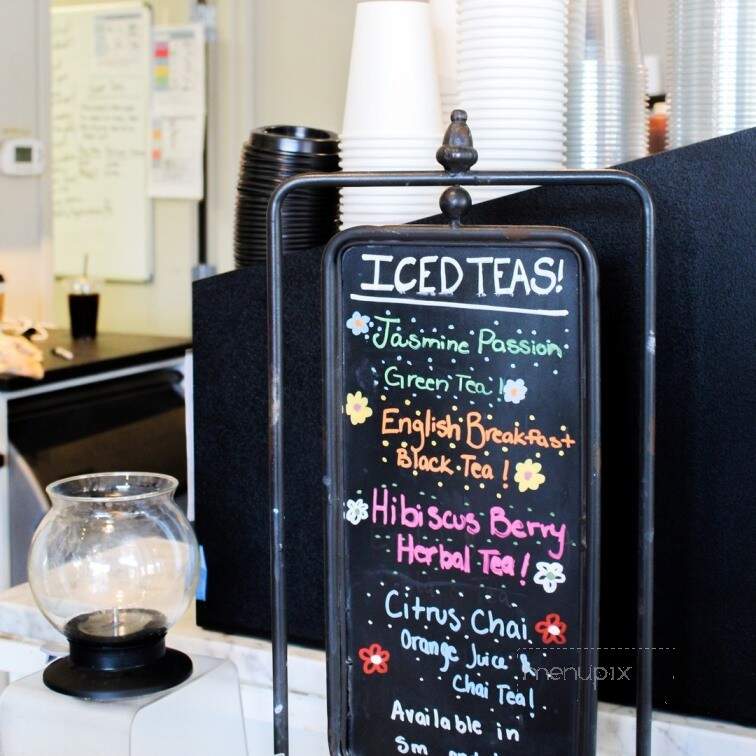 ICED TEAS!
Jasmine Passion
Green Tea!
English Breakfast
Black Tea!
Hibiscus Berry
Herbal Tea!
Citrus Chai
Orange Juice &
Chai Tea!
Available in
Sm
menupix